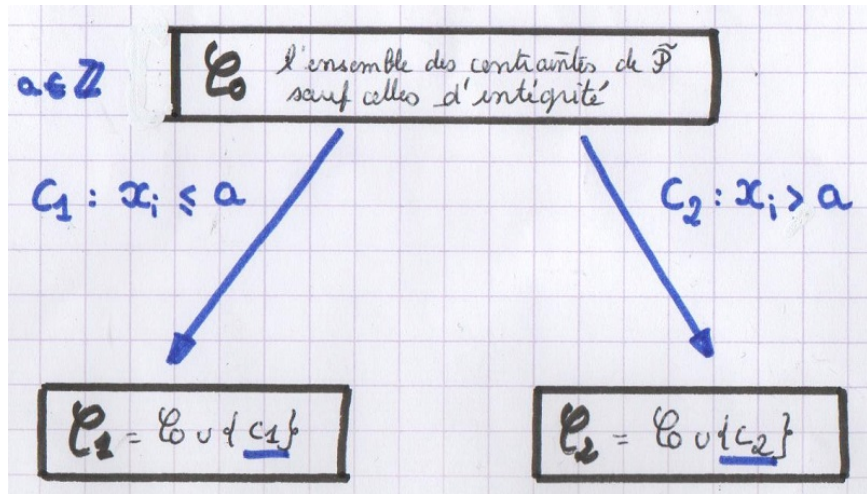 a ∈ ℤ
𝒞₀ l'ensemble des contraintes de P̃
sauf celles d'intégrité
C₁ : xᵢ ≤ a
C₂ : xᵢ > a
𝒞₁ = 𝒞₀ ∪ {C₁}
𝒞₂ = 𝒞₀ ∪ {C₂}